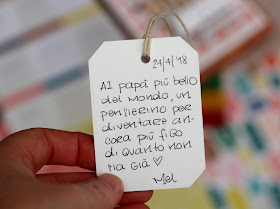 24/4/'18
Al papà più bello
del mondo, un
pensierino per
diventare an-
cora più figo
di quanto non
sia già ♡
Mel